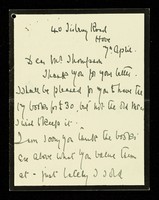 Road
Hove
7th April
Dear Mr Thompson
Thank you for your letter.
I shall be pleased for you to have the
17 books for £30, but not the old
I am sorry you think the books
are above what you value them
at - just lately I sold